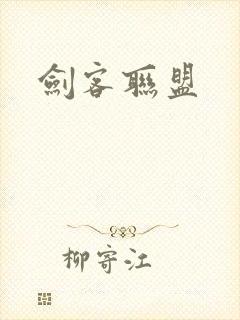 劍客聯盟
柳寄江